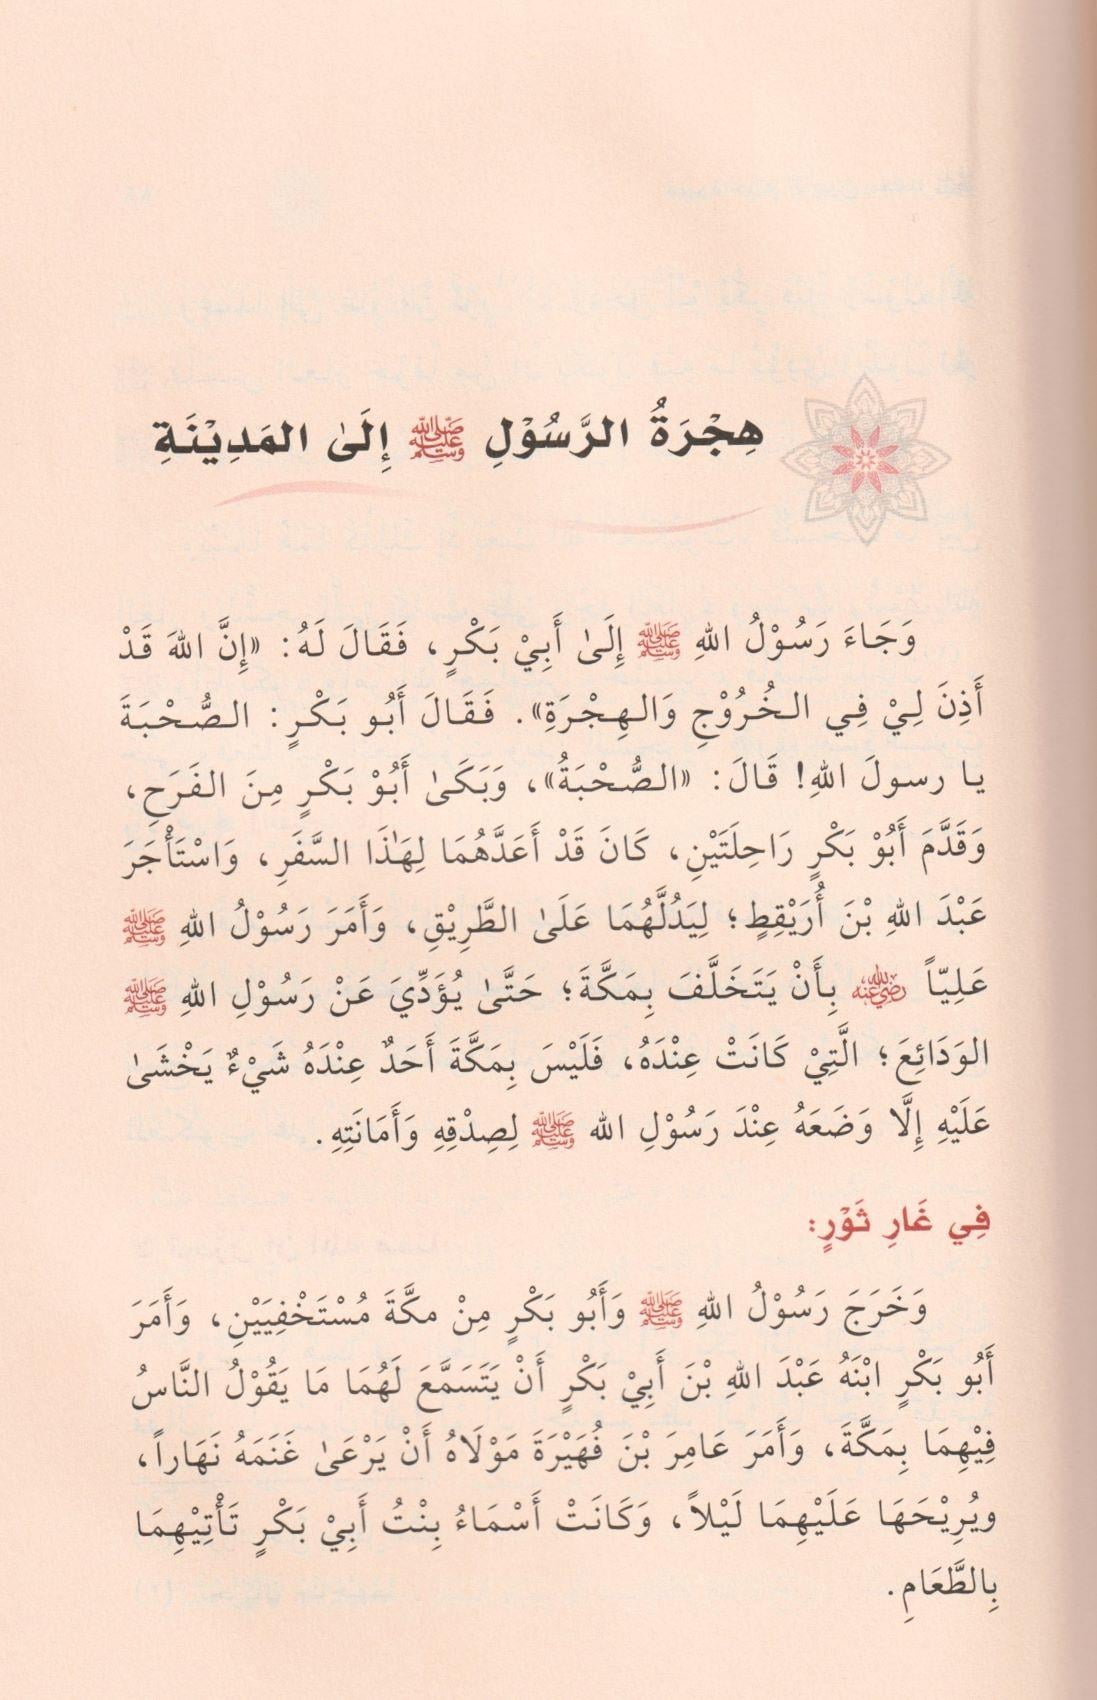 هِجْرَةُ الرَّسُوْلِ ﷺ إِلَىٰ المَدِيْنَةِ
وَجَاءَ رَسُوْلُ اللهِ ﷺ إِلَىٰ أَبِيْ بَكْرٍ، فَقَالَ لَهُ: «إِنَّ اللهَ قَدْ
أَذِنَ لِيْ فِي الخُرُوْجِ وَالهِجْرَةِ». فَقَالَ أَبُو بَكْرٍ: الصُّحْبَةَ
يا رسولَ اللهِ! قَالَ: «الصُّحْبَةُ»، وَبَكَىٰ أَبُوْ بَكْرٍ مِنَ الفَرَحِ،
وَقَدَّمَ أَبُوْ بَكْرٍ رَاحِلَتَيْنِ، كَانَ قَدْ أَعَدَّهُمَا لِهَٰذَا السَّفَرِ، وَاسْتَأْجَرَ
عَبْدَ اللهِ بْنَ أُرَيْقِطٍ؛ لِيَدُلَّهُمَا عَلَىٰ الطَّرِيْقِ، وَأَمَرَ رَسُوْلُ اللهِ ﷺ
عَلِيّاً رضي الله عنه بِأَنْ يَتَخَلَّفَ بِمَكَّةَ؛ حَتَّىٰ يُؤَدِّيَ عَنْ رَسُوْلِ اللهِ ﷺ
الوَدَائِعَ؛ الَّتِيْ كَانَتْ عِنْدَهُ، فَلَيْسَ بِمَكَّةَ أَحَدٌ عِنْدَهُ شَيْءٌ يَخْشَىٰ
عَلَيْهِ إِلَّا وَضَعَهُ عِنْدَ رَسُوْلِ الله ﷺ لِصِدْقِهِ وَأَمَانَتِهِ.
فِي غَارِ ثَوْرٍ:
وَخَرَجَ رَسُوْلُ اللهِ ﷺ وَأَبُو بَكْرٍ مِنْ مكَّةَ مُسْتَخْفِيَيْنِ، وَأَمَرَ
أَبُو بَكْرٍ ابْنَهُ عَبْدَ اللهِ بْنَ أَبِيْ بَكْرٍ أَنْ يَتَسَمَّعَ لَهُمَا مَا يَقُوْلُ النَّاسُ
فِيْهِمَا بِمَكَّةَ، وَأَمَرَ عَامِرَ بْنَ فُهَيْرَةَ مَوْلَاهُ أَنْ يَرْعَىٰ غَنَمَهُ نَهَاراً،
ويُرِيْحَهَا عَلَيْهِمَا لَيْلاً، وَكَانَتْ أَسْمَاءُ بِنْتُ أَبِيْ بَكْرٍ تَأْتِيْهِمَا
بِالطَّعَامِ.